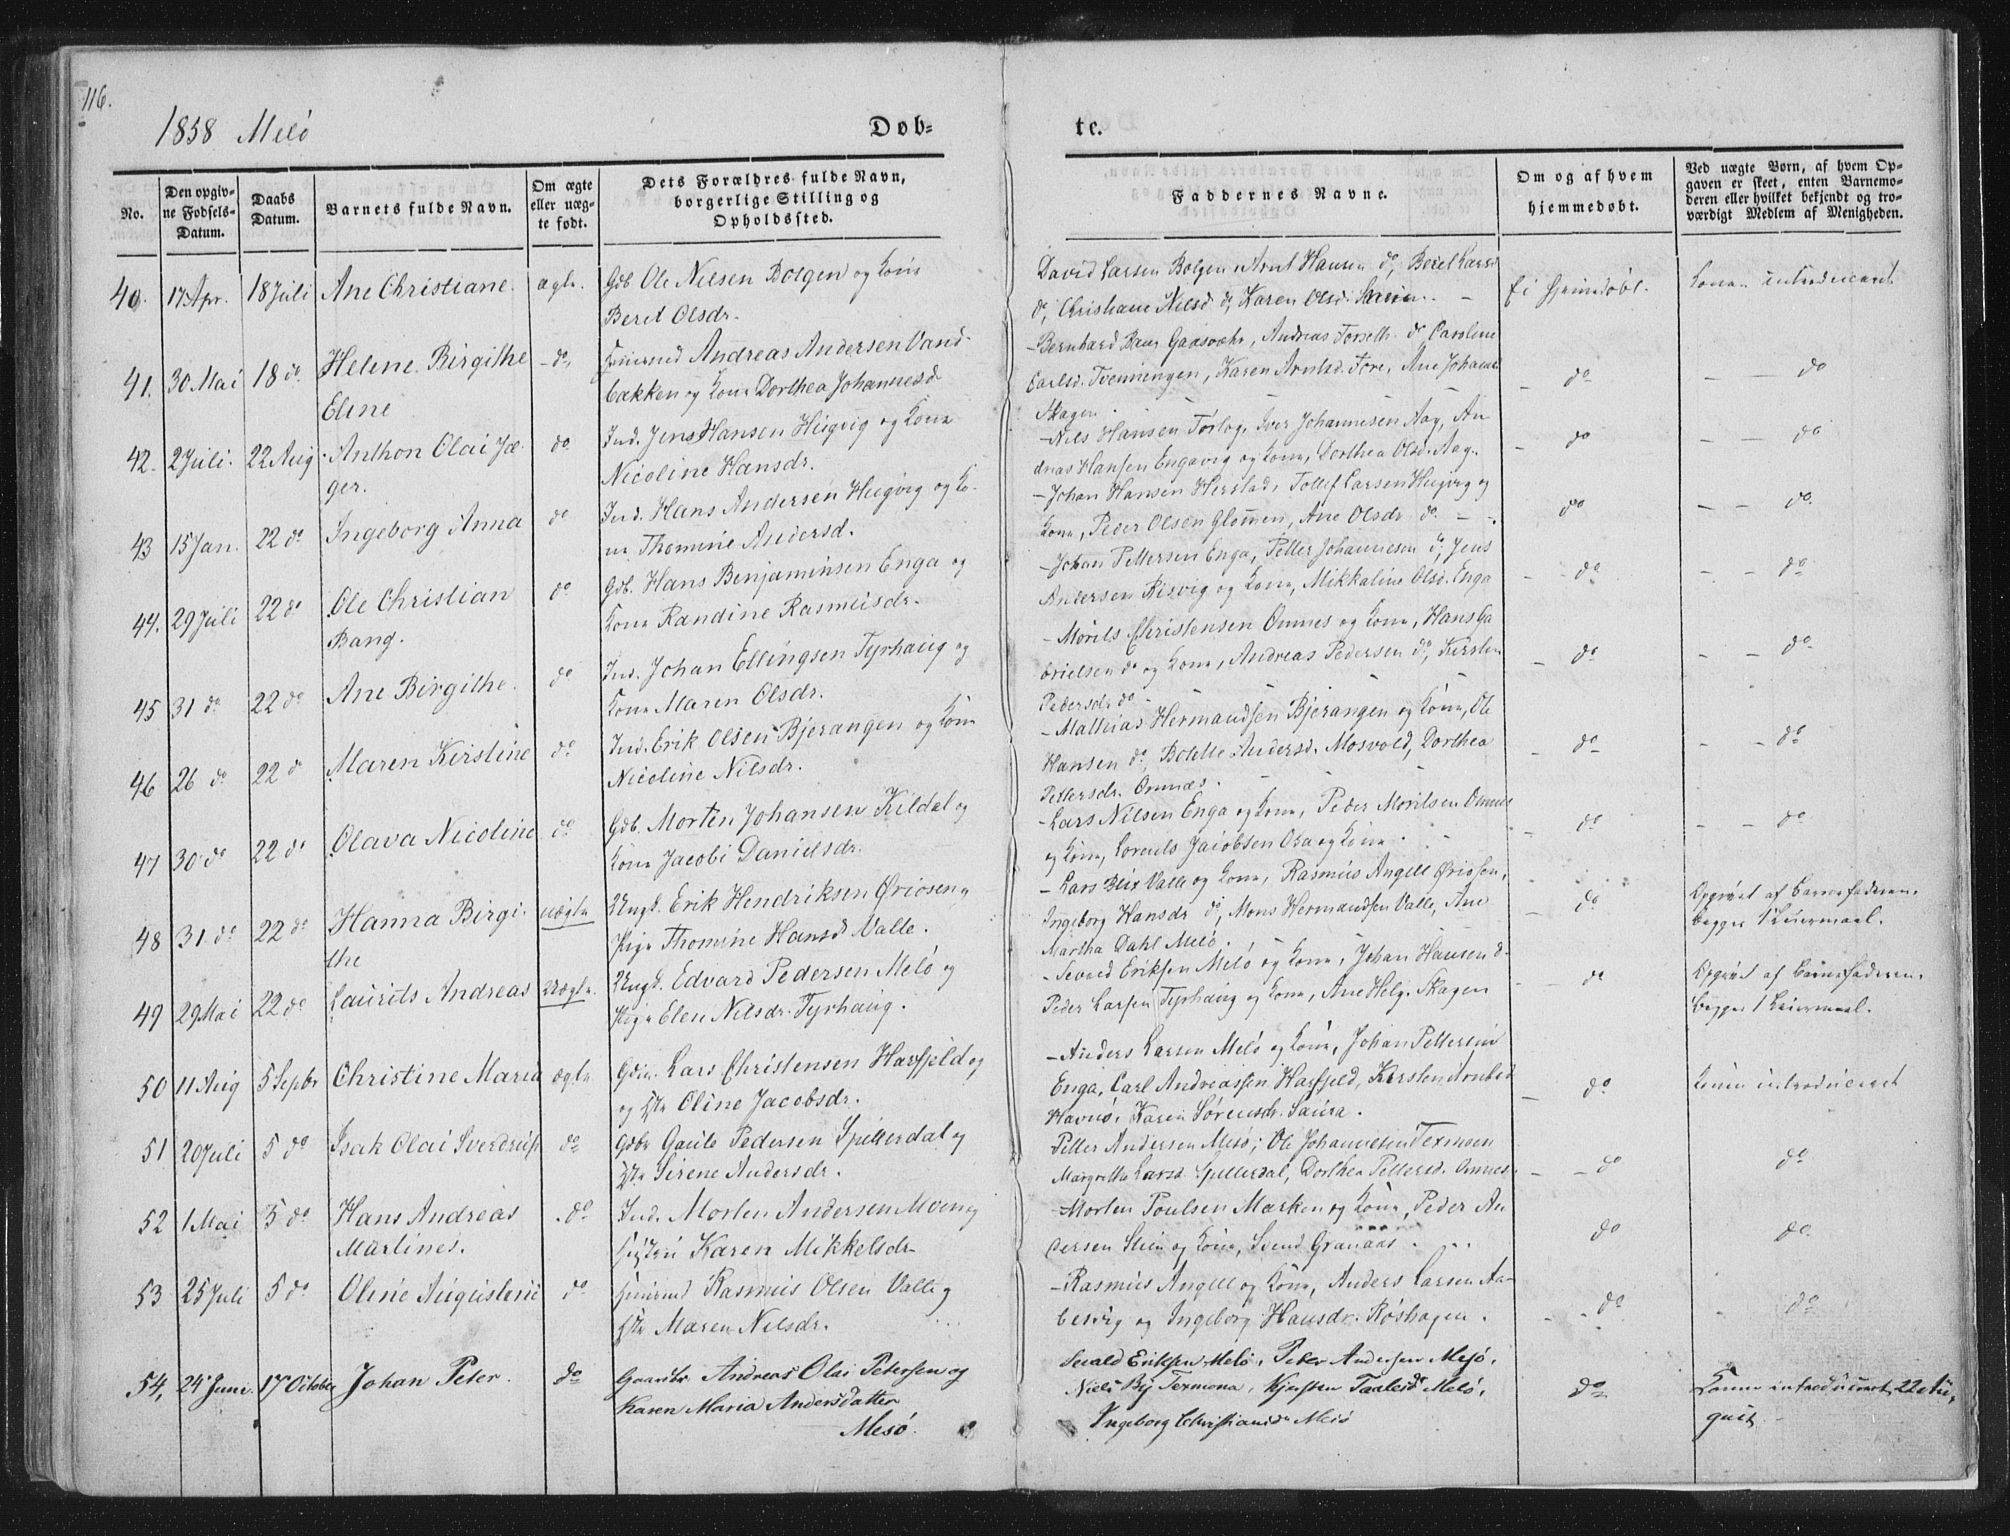 116.
1858 Melö
Døb-
te.
No.
Den opgiv-
ne Fødsels-
Datum.
Daabs
Datum.
Barnets fulde Navn.
Om ægte
eller uæg-
te født.
Dets Forældres fulde Navn,
borgerlige Stilling og
Opholdssted.
Faddernes Navne.
Om og af hvem
hjemmedøbt.
Ved uægte Børn, af hvem Op-
gaven er skeet, enten Barnemo-
deren eller hvilket bekjendt og tro-
værdigt Medlem af Menigheden.
40. 17 Apr. 18 Juli Ane Christiane. ægte. Gdb Ole Nilsen Bolgen og Kone
Berit Olsdr.
David Larsen Bolgen, Arnt Hansen do, Beret Larsd
do, Christiane Nilsd do, Karen Olsd.
Konen introduceret
41. 30 Mai 18 do Helene Birgithe
Eline
do. Andreas Andersen Vand-
bakken og Kone Dorthea Johannesd
Bernhard Bang Gaasvær, Andreas Forseth do Caroline
Carlsd. Tvenningen, Karen Arntsd. Fore, Ane Johans
Skagen.
do
do
42. 2 Juli. 22 Aug Anthon Olai Jæ-
ger.
do Ind. Jens Hansen Heigvig og Kone
Nicoline Hansdr.
Nils Hansen Forlog, Iver Johannesen Aag, An-
dreas Hansen Engavig og Kone, Dorthea Olsd. Aag.
do
do
43 15 Jan. 22 do Ingeborg Anna do Ind. Hans Andersen Heigvig og Ko-
ne Thomine Andersd.
Johan Hansen Herstad, Tollef Larsen Heigvig og
Kone, Peder Olsen Glomen, Ane Olsdr do
do
do
44. 29 Juli 22 do Ole Christian
Bang.
do Gdb. Hans Benjaminsen Enga og
Kone Randine Rasmusdr.
Johan Pettersen Enga, Petter Johannesen do, Jens
Andersen Risvig og Kone, Mikkaline Olsd. Enga
do
do
45 31 do 22 do Ane Birgithe. do Ind. Johan Ellingsen Tyrhaug og
Kone Maren Olsdr.
Morits Christensen Ornes og Kone, Hans Ga-
brielsen do og Kone, Andreas Pedersen do, Kirsten
Pedersdr do
do
do
46 26 do 22 do Maren Kirstine do Ind. Erik Olsen Bjerangen og Kone
Nicoline Nilsdr.
Mathias Hermandsen Bjerangen og Kone, Ole
Hansen do, Andersd. Mosvold, Dorthea
Pettersdr. Ornæs.
do
do
47 30 do 22 do Olava Nicoline do Gdb. Morten Johansen Kildal og
Kone Jacobi Danielsdr.
Lars Nilsen Enga og Kone, Peder Moritsen Ornes
og Kone, Lorents Jacobsen Osa og Kone
do
do
48 31 do 22 do Hanna Birgi-
the
uægte Ungk. Erik Hendriksen Øriosen og
Pige Thomine Hansd Valle.
Lars Blix Valle og Kone, Rasmus Angell Øriosen,
Ingeborg Hansdr do, Mons Hermandsen Valle, Ane
Martha Dahl Melö.
do
Opgivet af Barnefaderen.
begges 1 Leiermaal.
49 29 Mai 22 do Laurits Andreas Uægte. Ungk. Edvard Pedersen Melö og
Pige Elen Nilsdr. Tyrhaug.
Sevald Eriksen Melö og Kone, Johan Hansen do
Peder Larsen Tyrhaug og Kone, Ane Helg. Skagen
do
Opgivet af Barnefaderen.
begges 1 Leiermaal.
50 11 Aug 5 Septbr Christine Maria ægte Lars Christensen Harfjeld og
Oline Jacobsdr.
Anders Larsen Melö og Kone, Johan Pettersen
Enga, Carl Andreassen Harfjeld, Kirsten Arntsd
Havnö, Karen Sörensdr. Saura.
do
Konen introduceret
51 20 Juli 5 do Isak Olai Sverdrup do Gdbr Gaute Pedersen Spilderdal og
Hstr Sirene Andersdr.
Petter Andersen Mesö, Ole Johannesen Texmoen
Margrethe Larsd Spilderdal, Dorthea Pettersd. Ornes.
do
do
52 1 Mai 5 do Hans Andreas
Martines.
do Ind. Morten Andersen Moen og
Karen Mikkelsdr
Morten Poulsen Marken og Kone, Peder An-
dersen Stien og Kone, Svend Granaas
do
do
53 25 Juli 5 do Oline Augustine do Rasmus Olsen Valle og
Hstr Maren Nilsdr.
Rasmus Angell og Kone, Anders Larsen Aa-
bersvig og Ingeborg Hansdr. Röshagen.
do
do
54, 24 Juni 17 October Johan Peter. do Gaardbr Andreas Olai Petersen og
Karen Maria Andersdatter
Mesö.
Sevald Eriksen Melö, Peter Andersen Mesö,
Niels By Texmona, Kjersten Taalesdr Melö,
Ingeborg Christiansdr Mesö
do
Konen introduceret 22 Au-
gust.